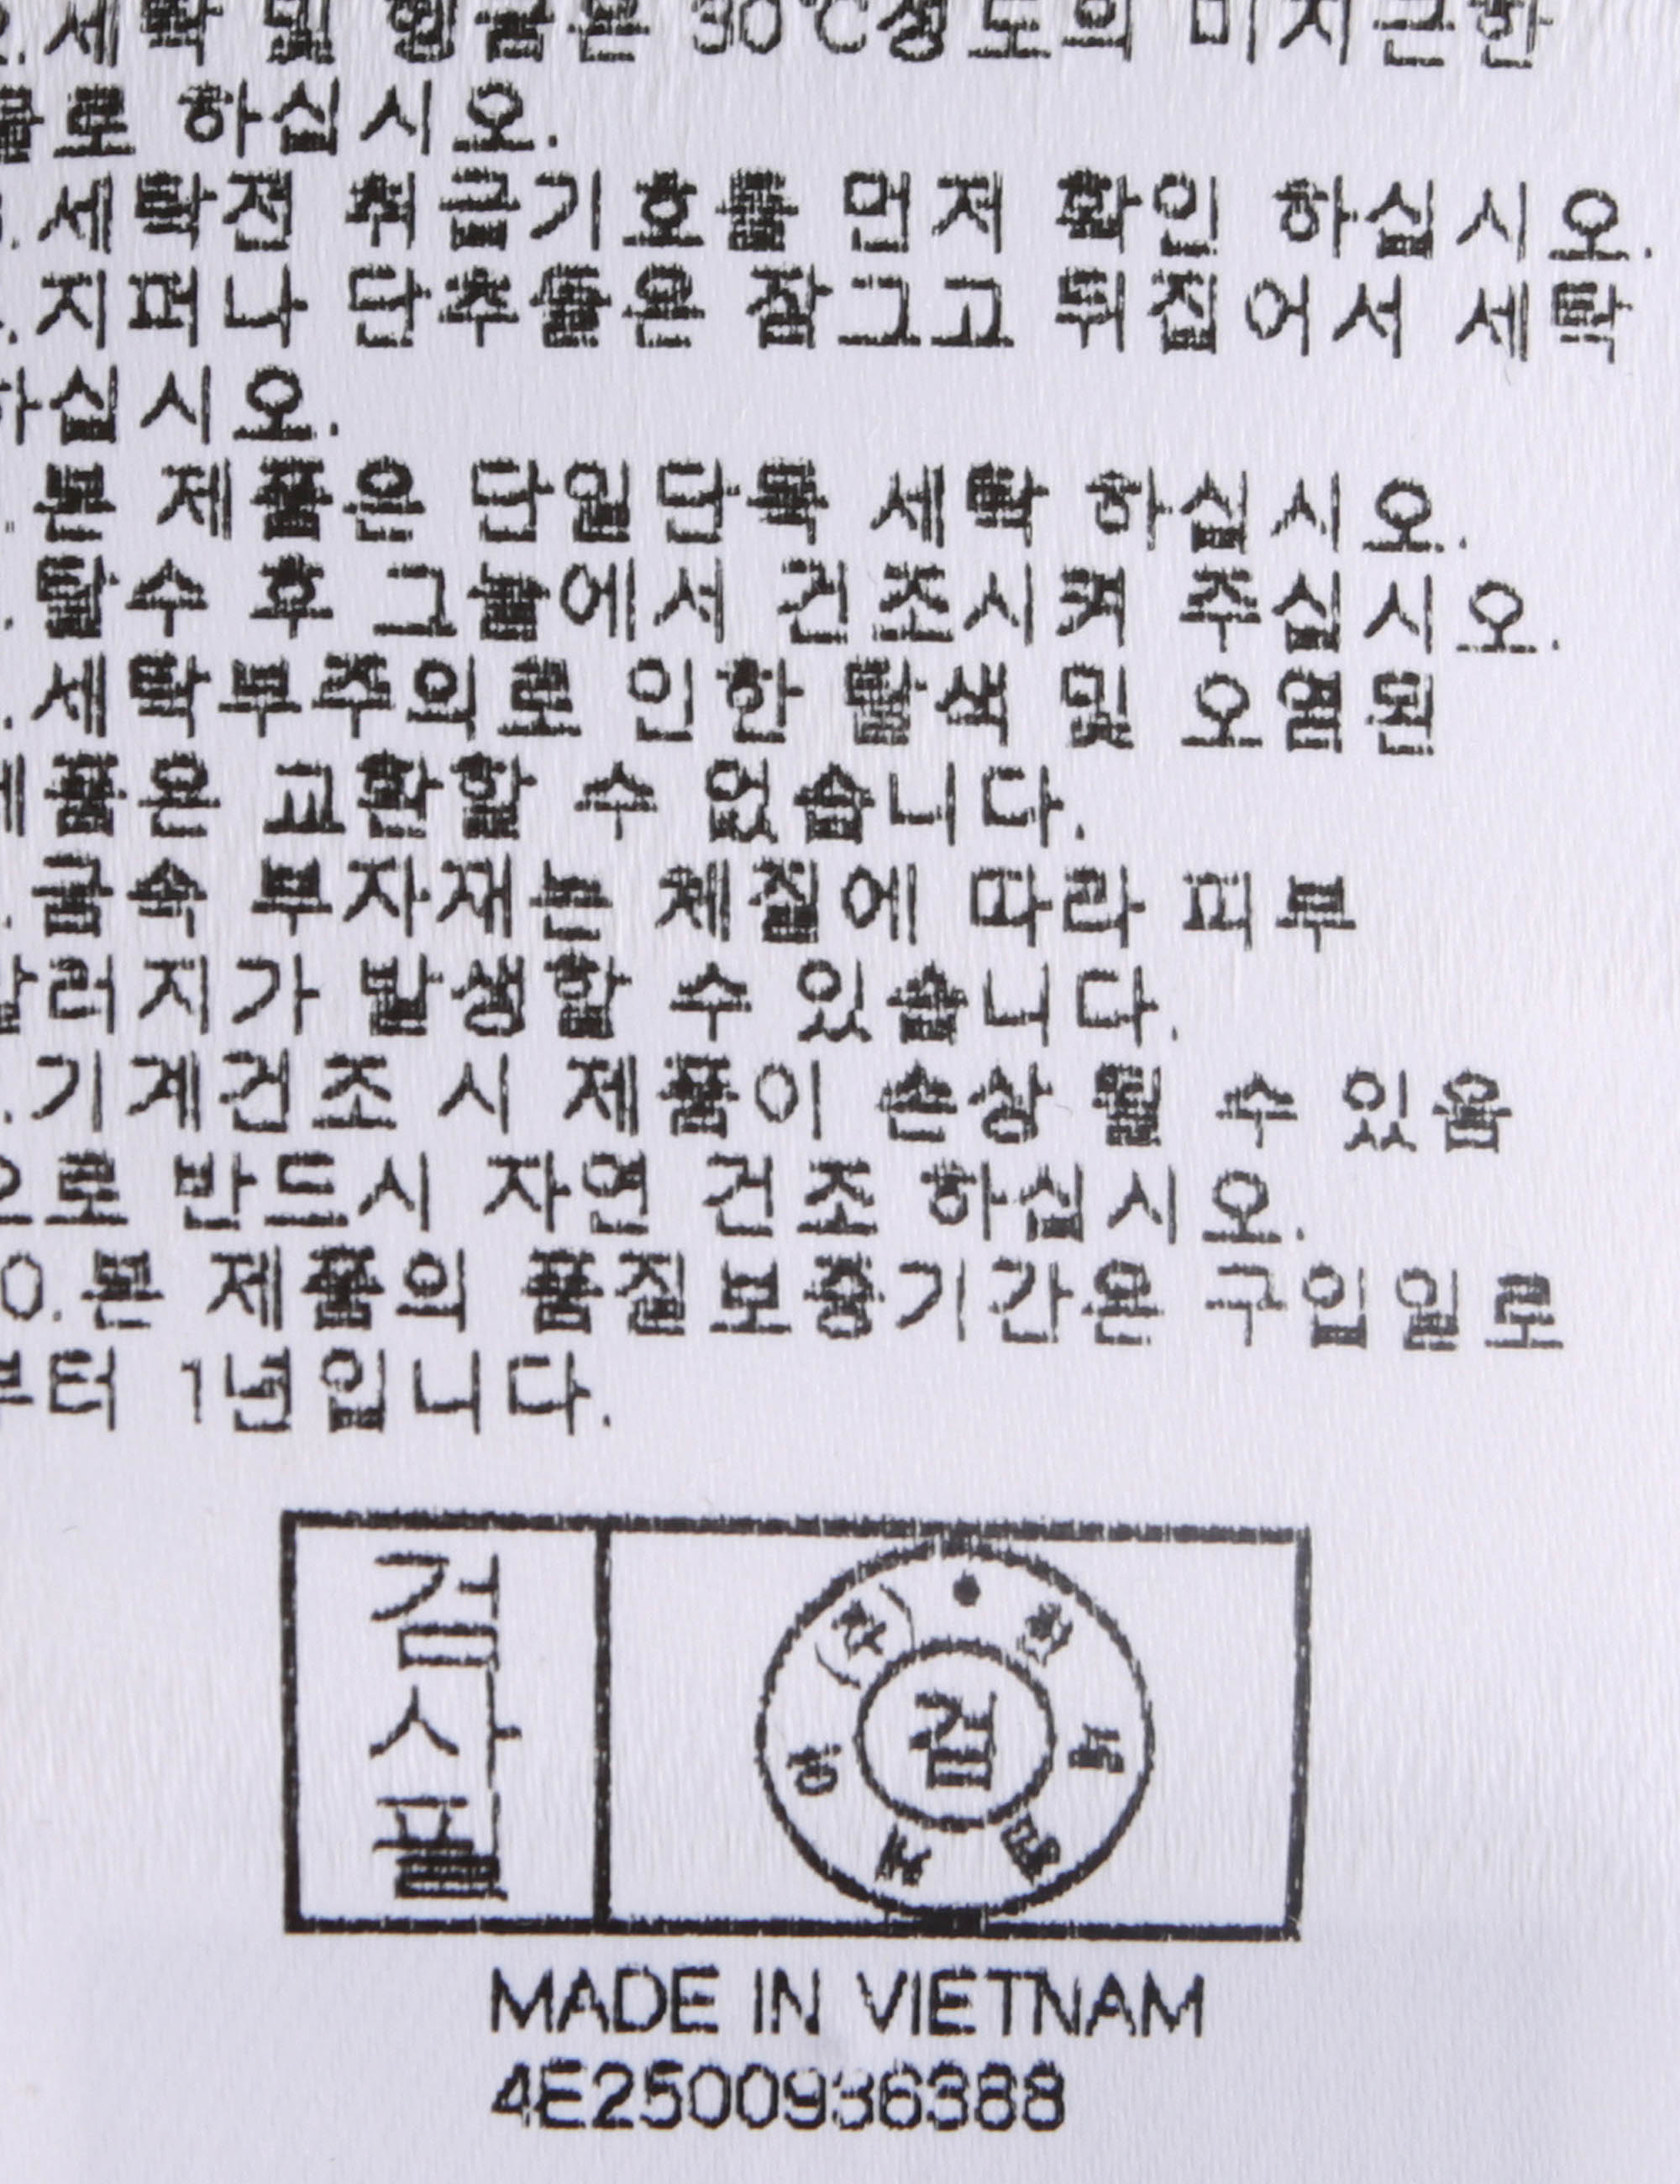 2.세탁 및 헹굼은 30℃정도의 미지근한
물로 하십시오.
3.세탁전 취급기호를 먼저 확인 하십시오.
.지퍼나 단추들은 잠그고 뒤집어서 세탁
하십시오.
.본 제품은 단일단독 세탁 하십시오.
.탈수 후 그늘에서 건조시켜 주십시오.
.세탁부주의로 인한 탈색 및 오염된
제품은 교환할 수 없습니다.
.금속 부자재는 체질에 따라 피부
알러지가 발생할 수 있습니다.
.기계건조 시 제품이 손상 될 수 있음
으로 반드시 자연 건조 하십시오.
0.본 제품의 품질보증기간은 구입일로
부터 1년입니다.
검사필
검
MADE IN VIETNAM
4E2500936388